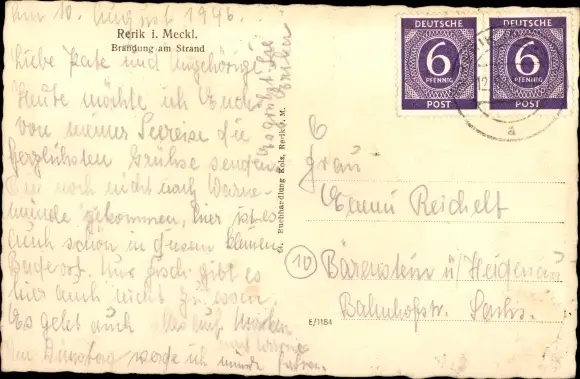 am 10. August 1946.
Rerik i. Meckl.
Brandung am Strand
Liebe Pate und Angehörige
Heute möchte ich Euch
von meiner Seereise die
herzlichsten Grüße senden
noch nicht nach Warne-
münde gekommen, hier ist es
auch schön in diesem kleinen
Badeort. Nur Fisch gibt es
hier auch nicht zu essen.
Es geht auch alles auf Marken
am Dienstag werde ich wieder fahren.
Es grüßt Sie
G. Buchhandlung Kolz, Rerik i. M.
DEUTSCHE
6
PFENNIG
POST
DEUTSCHE
6
PFENNIG
POST
12
a
6
Frau
Emmi Reichelt
(10) Bärenstein ü/Heidenau
Bahnhofstr. Sachs.
E/1184